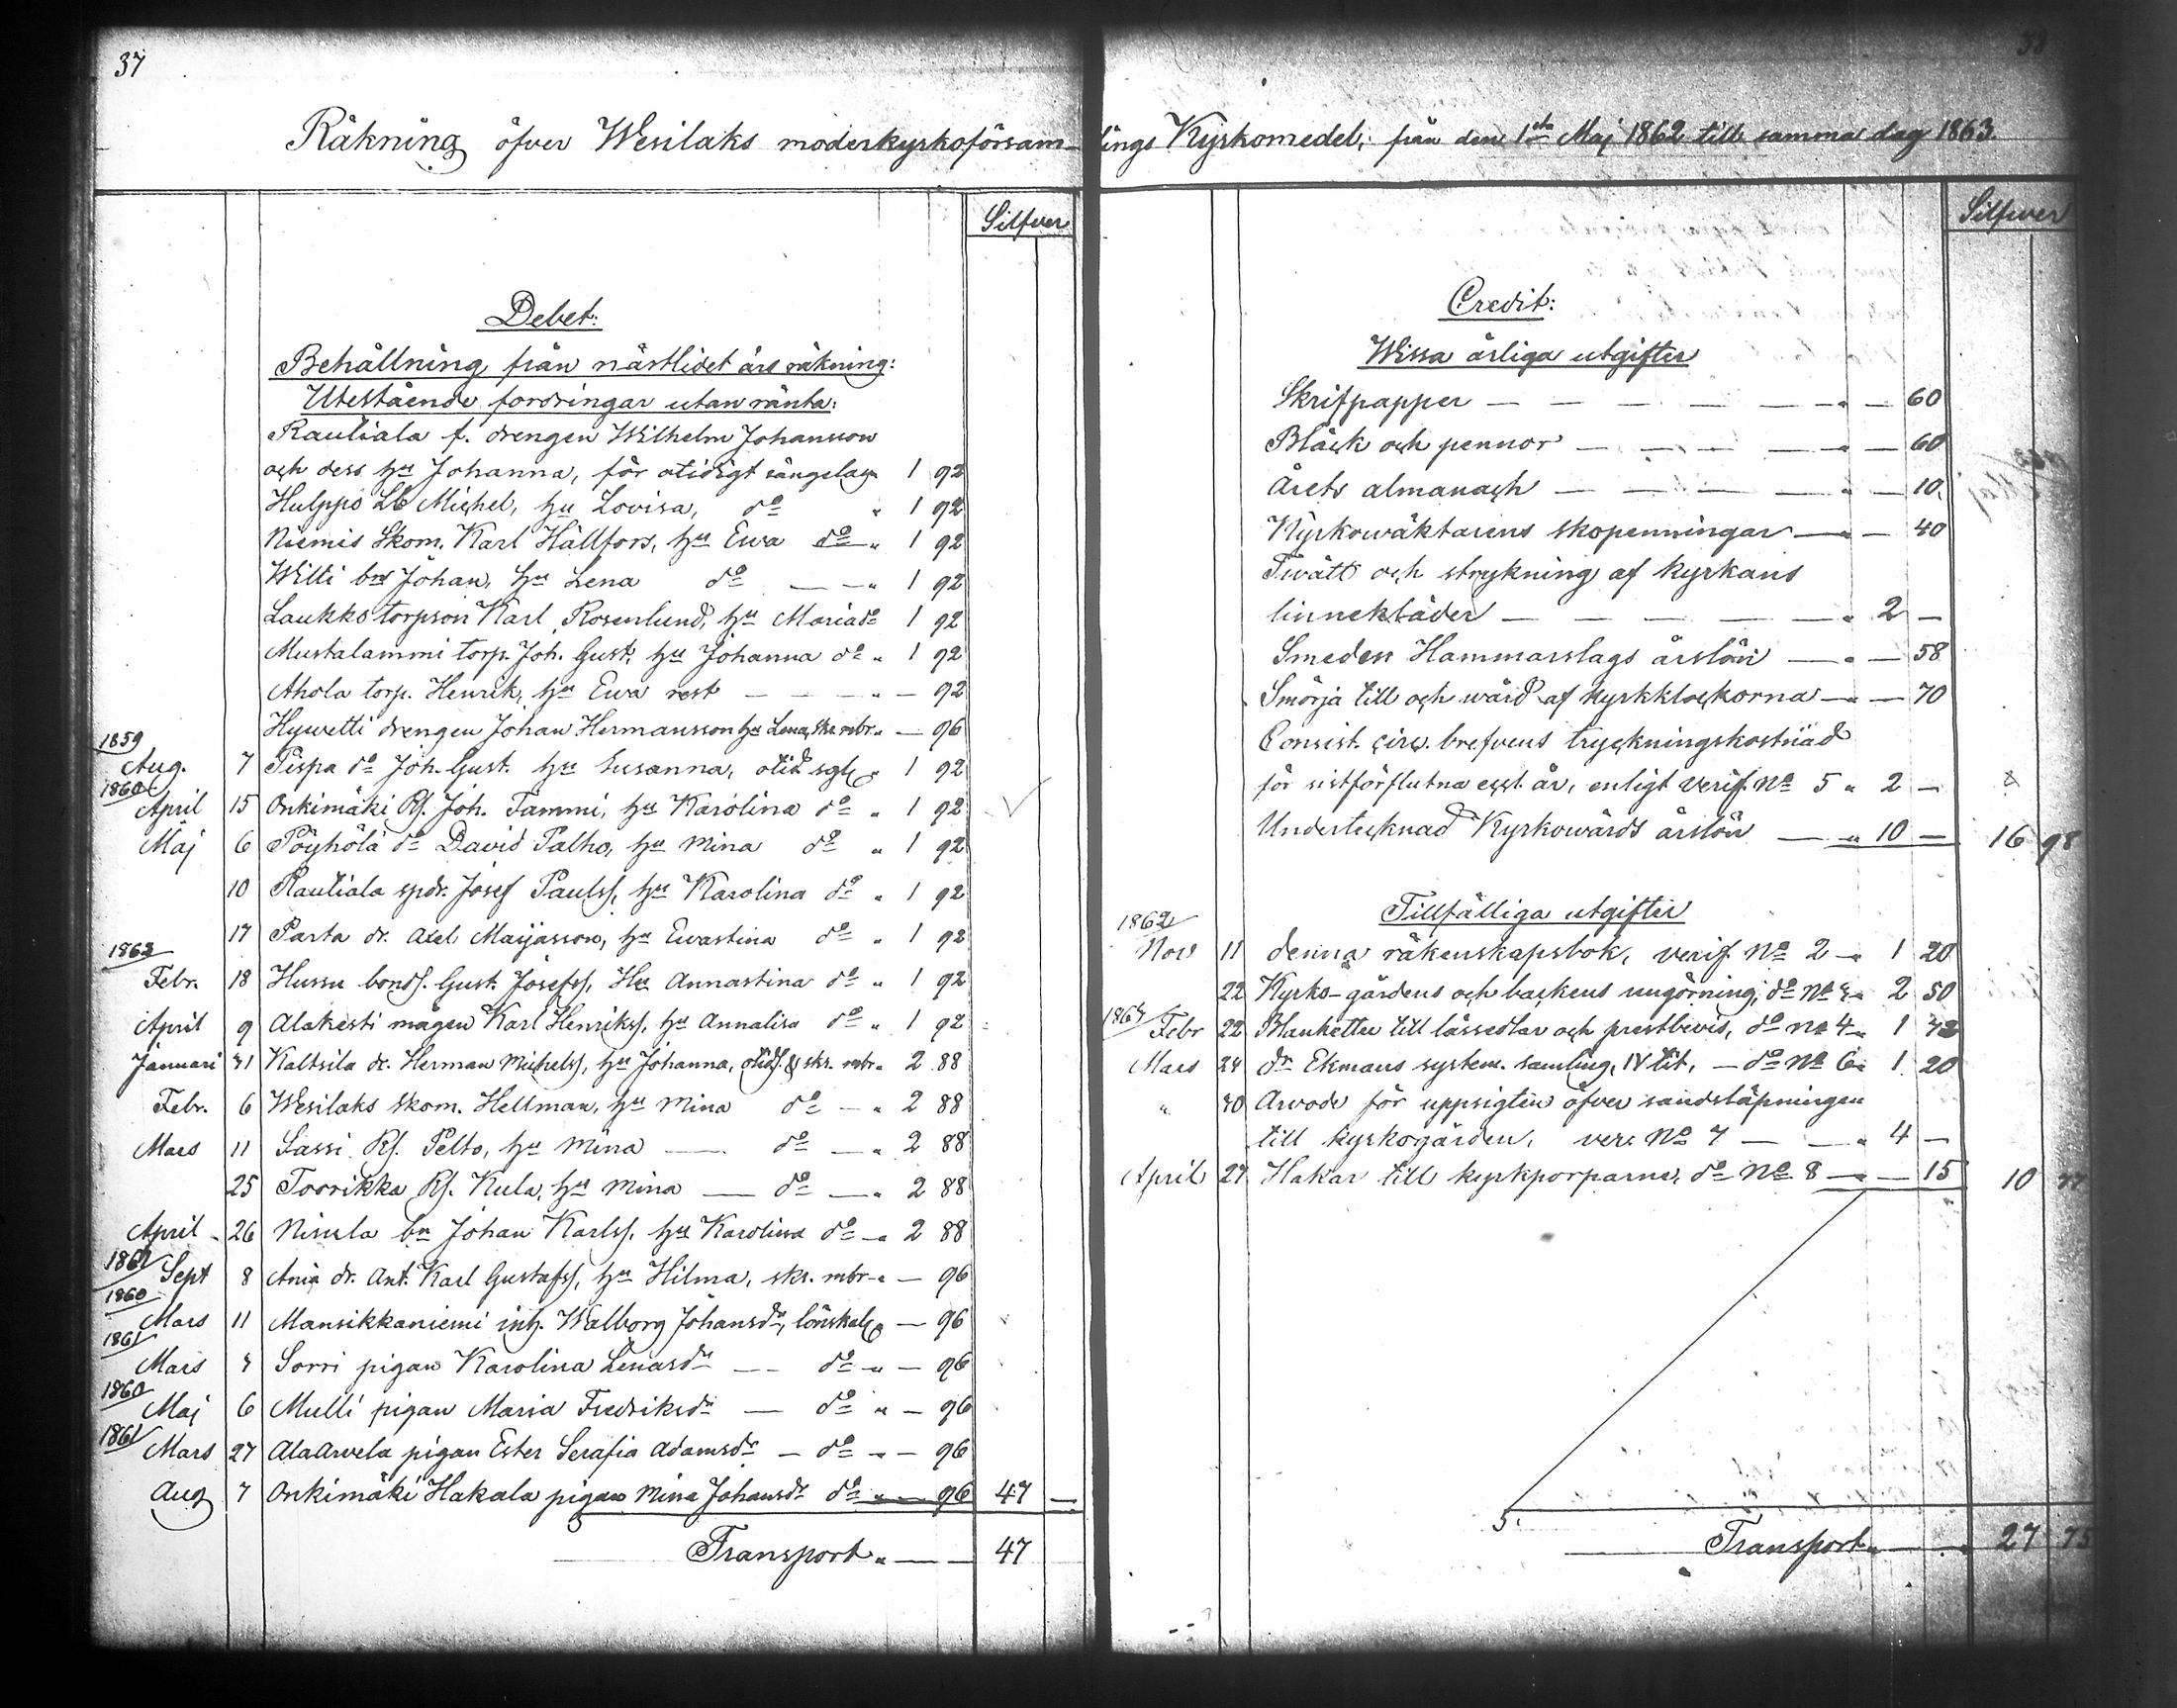 37
38
Räkning öfver Wesilaks moderkyrkoförsam-lings Kyrkomedel, från den 1sta Maj 1862 till samma dag 1863
Silfver
Debet:
Behållning från nästlidet års räkning:
Utestående fordringar utan ränta:
Rautiala f. drengen Wilhelm Johansson
och dess hu Johanna, för otidigt sängelag 1 92
Hulppo Lb Michel, hu Lovisa, do " 1 92
Niemis Skom. Karl Hällfors, hu Ewa do " 1 92
Witti bnd Johan, hu Lena do — — " 1 92
Laukko torpson Karl Rosenlund, hu Maria do 1 92
Mustalammi torp. Joh. Gust. hu Johanna do " 1 92
Ahola torp. Henrik, hu Ewa rest — — — " — 92
Hyvetti drengen Johan Hermansson hu Lena, skr. mbr " — 96
1859
Aug. 7 Pispa do Joh. Gust. hu Susanna, otid sgl " 1 92
1860
April 15 Onkimäki Rf. Joh. Tammi, hu Karolina do " 1 92
Maj 6 Pöyhölä do David Palho, hu Mina do " 1 92
10 Rautiala spdr. Josef Paulss, hu Karolina do " 1 92
17 Parta dr. Axel Maijasson, hu Ewastina do " 1 92
1862
Febr. 18 Hussu bonds. Gust. Josefss, Hu Annastina do " 1 92
April 9 Alakesti mågen Karl Henrikss, hu Annalisa do " 1 92
Januari 31 Kaltsila dr. Herman Michelss, hu Johanna, otids. & skr. mbr " 2 88
Febr. 6 Wesilaks Skom. Hellman, hu Mina do — " 2 88
Mars 11 Sassi Rf. Pelto, hu Mina — do — " 2 88
25 Toorikka Rf. Kula, hu Mina — do — " 2 88
April 26 Nisula bn Johan Karlss. hu Karolina do — " 2 88
1861
Sept 8 Ania dr. Ant. Karl Gustafss, hu Hilma, skr. mbr " — 96
1860
Mars 11 Mansikkaniemi inh. Walborg Johansdr, lönskal " — 96
1861
Mars 3 Sorri pigan Karolina Lenasdr — do " — 96
1860
Maj 6 Mulli pigan Maria Fredriksdr — do " — 96
1861
Mars 27 AlaArvela pigan Ester Serafia Adamsdr — do " — 96
Aug 7 Onkimäki Hakala pigan Mina Johansdr do " — 96 47 —
Transport " — — 47
Silfver
Credit:
Wissa årliga utgifter
Skrifpapper — — — — — " — 60
Bläck och pennor — — — — " — 60
Årets almanach — — — — " — 10
Kyrkowäktarens skopenningar — " — 40
Twätt och strykning af kyrkans
linnekläder — — — — — " 2 —
Smeden Hammarslags årslön — " — 58
Smörja till och wård af kyrkklockorna — " — 70
Consist. circ. brefvens tryckningskostnad
för sistförflutna eccl. år, enligt verif. No 5 " 2 —
Undertecknad Kyrkowärds årslön — " 10 — 16 98
Tillfälliga utgifter
1862
Nov 11 denna räkenskapsbok, verif. No 2 — " 1 20
22 Kyrko-gårdens och backens rengörning, do No 3 " 2 50
1863
Febr 22 Blanketter till låssedlar och prestbevis, do No 4 " 1 72
Mars 24 dr Ekmans system. samling, IV tit. — do No 6 " 1 20
" 30 Arvode för uppsigten öfver sandsläpningen
till kyrkogården, ver. No 7 — — " 4 —
April 27 Hakar till kyrkporparne, do No 8 — " — 15 10 77
5.
Transport " — — 27 75